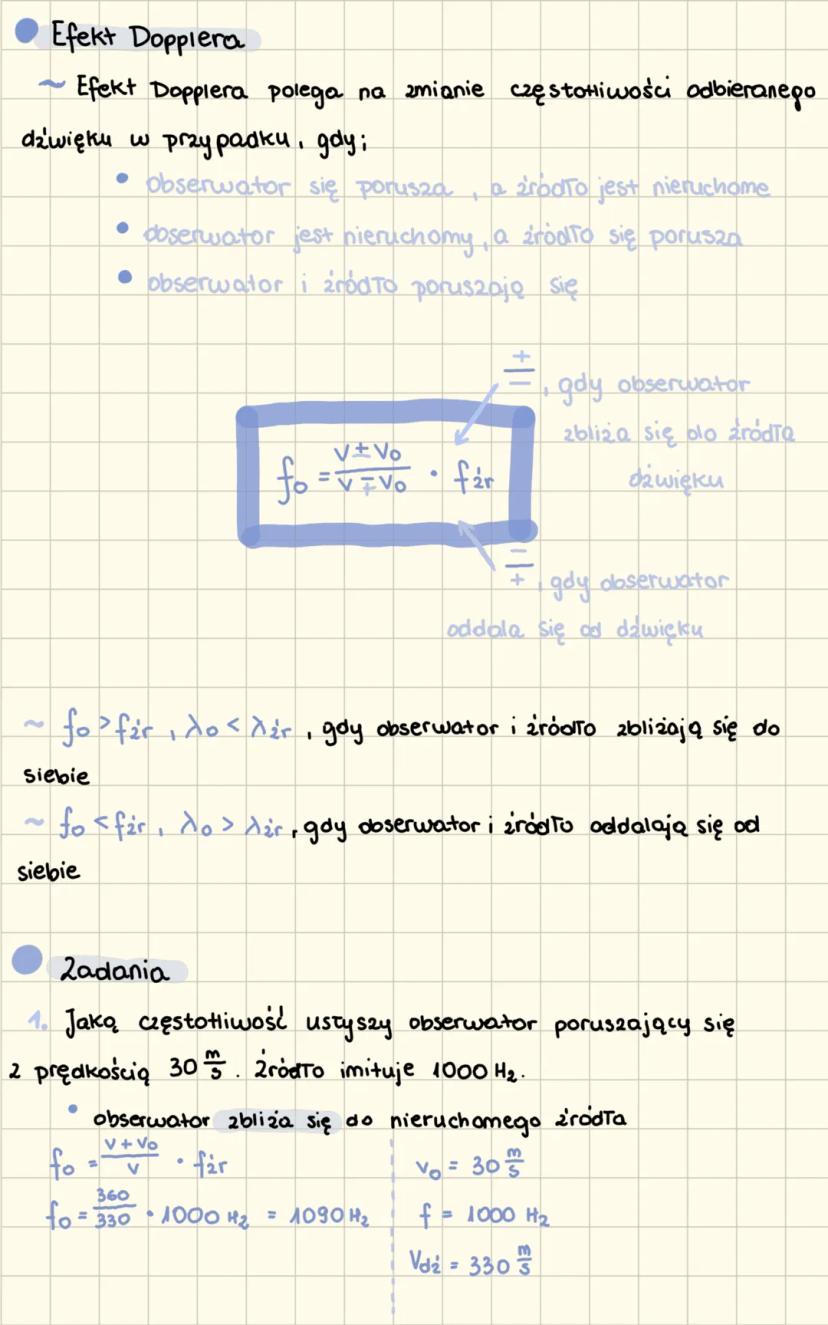 Efekt Dopplera
~ Efekt Dopplera polega na zmianie częstotliwości odbieranego
dźwięku w przypadku, gdy;
• obserwator się porusza, a źródło jest nieruchome
• obserwator jest nieruchomy, a źródło się porusza
• obserwator i źródło poruszają się
+/−, gdy obserwator
zbliża się do źródła
dźwięku
f₀ = (v ± v₀)/(v ∓ v₀) · f źr
−/+, gdy obserwator
oddala się od dźwięku
~ f₀ > f źr, λ₀ < λ źr, gdy obserwator i źródło zbliżają się do
siebie
~ f₀ < f źr, λ₀ > λ źr, gdy obserwator i źródło oddalają się od
siebie
Zadania
1. Jaką częstotliwość usłyszy obserwator poruszający się
z prędkością 30 m/s. Źródło imituje 1000 Hz.
• obserwator zbliża się do nieruchomego źródła
f₀ = (v + v₀)/v · f źr
v₀ = 30 m/s
f₀ = 360/330 · 1000 Hz = 1090 Hz
f = 1000 Hz
V dź = 330 m/s